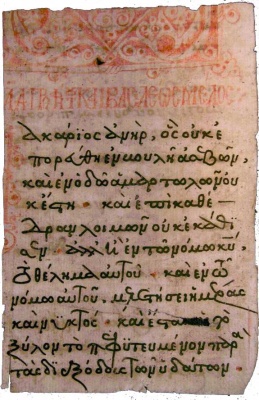 ακάριος ἀνὴρ, ὃς οὐκ ἐ
πορεύθη ἐν βουλῆ ἀσεβῶν,
καὶ ἐν ὁδῶ ἁμαρτωλῶν οὐ
κ ἔστη · καὶ ἐπὶ καθέ
δραν λοιμῶν οὐκ ἐκάθι
σεν · ἀλλ' ἢ ἐν τῶ νόμω κυ
τὸ θέλημα αὐτοῦ · καὶ ἐν τῶ
νόμω αὐτοῦ μελετήσει ἡμέρας
καὶ νυκτός · καὶ ἔσται ὡς τὸ
ξύλον τὸ πεφυτευμένον παρὰ
τὰς διεξόδους τῶν ὑδάτων